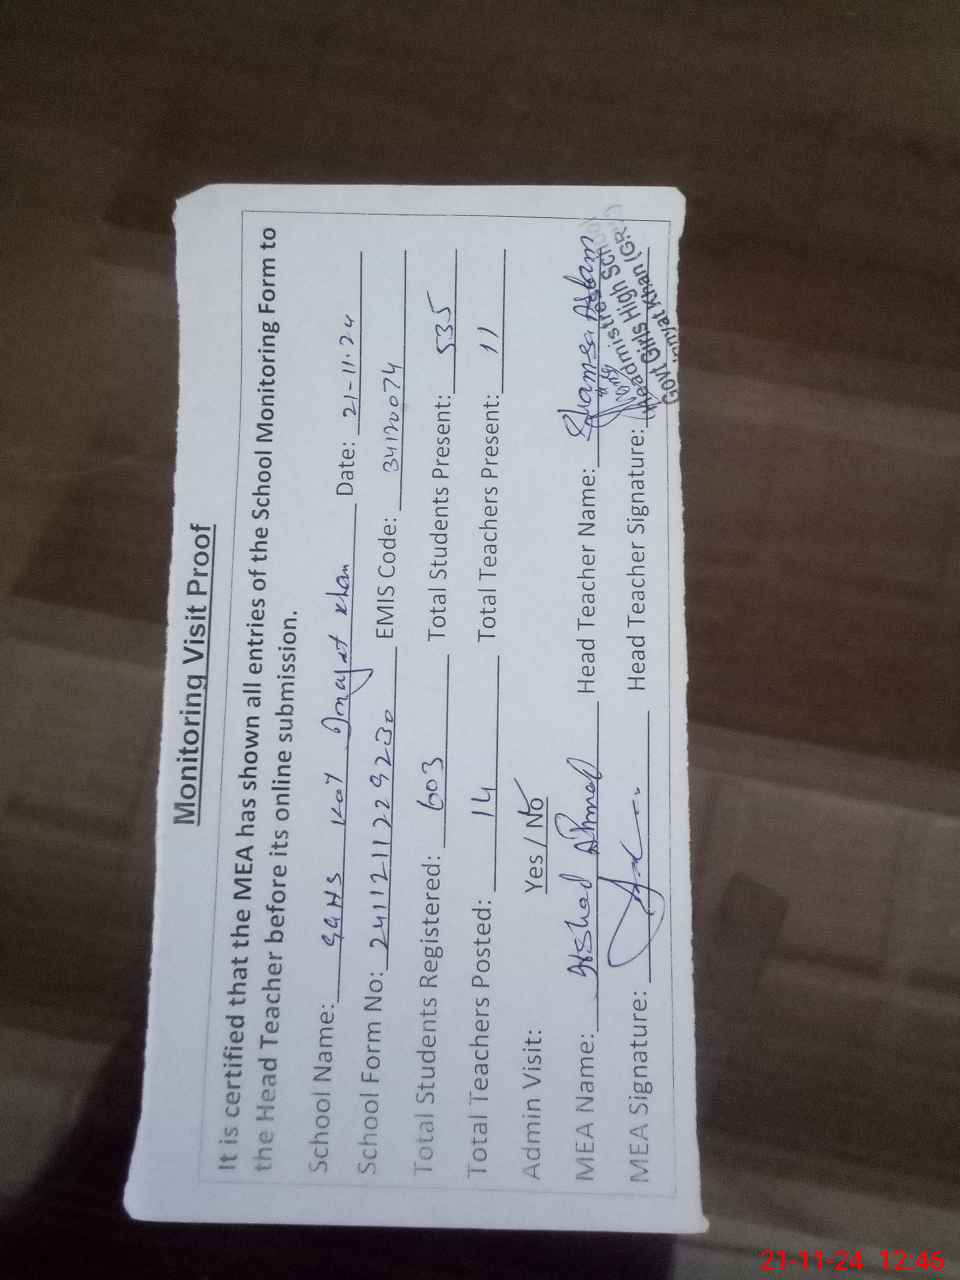 Monitoring Visit Proof
It is certified that the MEA has shown all entries of the School Monitoring Form to
the Head Teacher before its online submission.
School Name: GGHS Kot Inayat Khan Date: 21-11-24
School Form No: 241121122 9230 EMIS Code: 34120074
Total Students Registered: 603 Total Students Present: 535
Total Teachers Posted: 14 Total Teachers Present: 11
Admin Visit: Yes / No
MEA Name: Arshad Ahmad Head Teacher Name: Shamsa Aslam
MEA Signature: Head Teacher Signature:
Headmistress
Govt Girls High School
Inayat Khan (GR
21-11-24 12:46